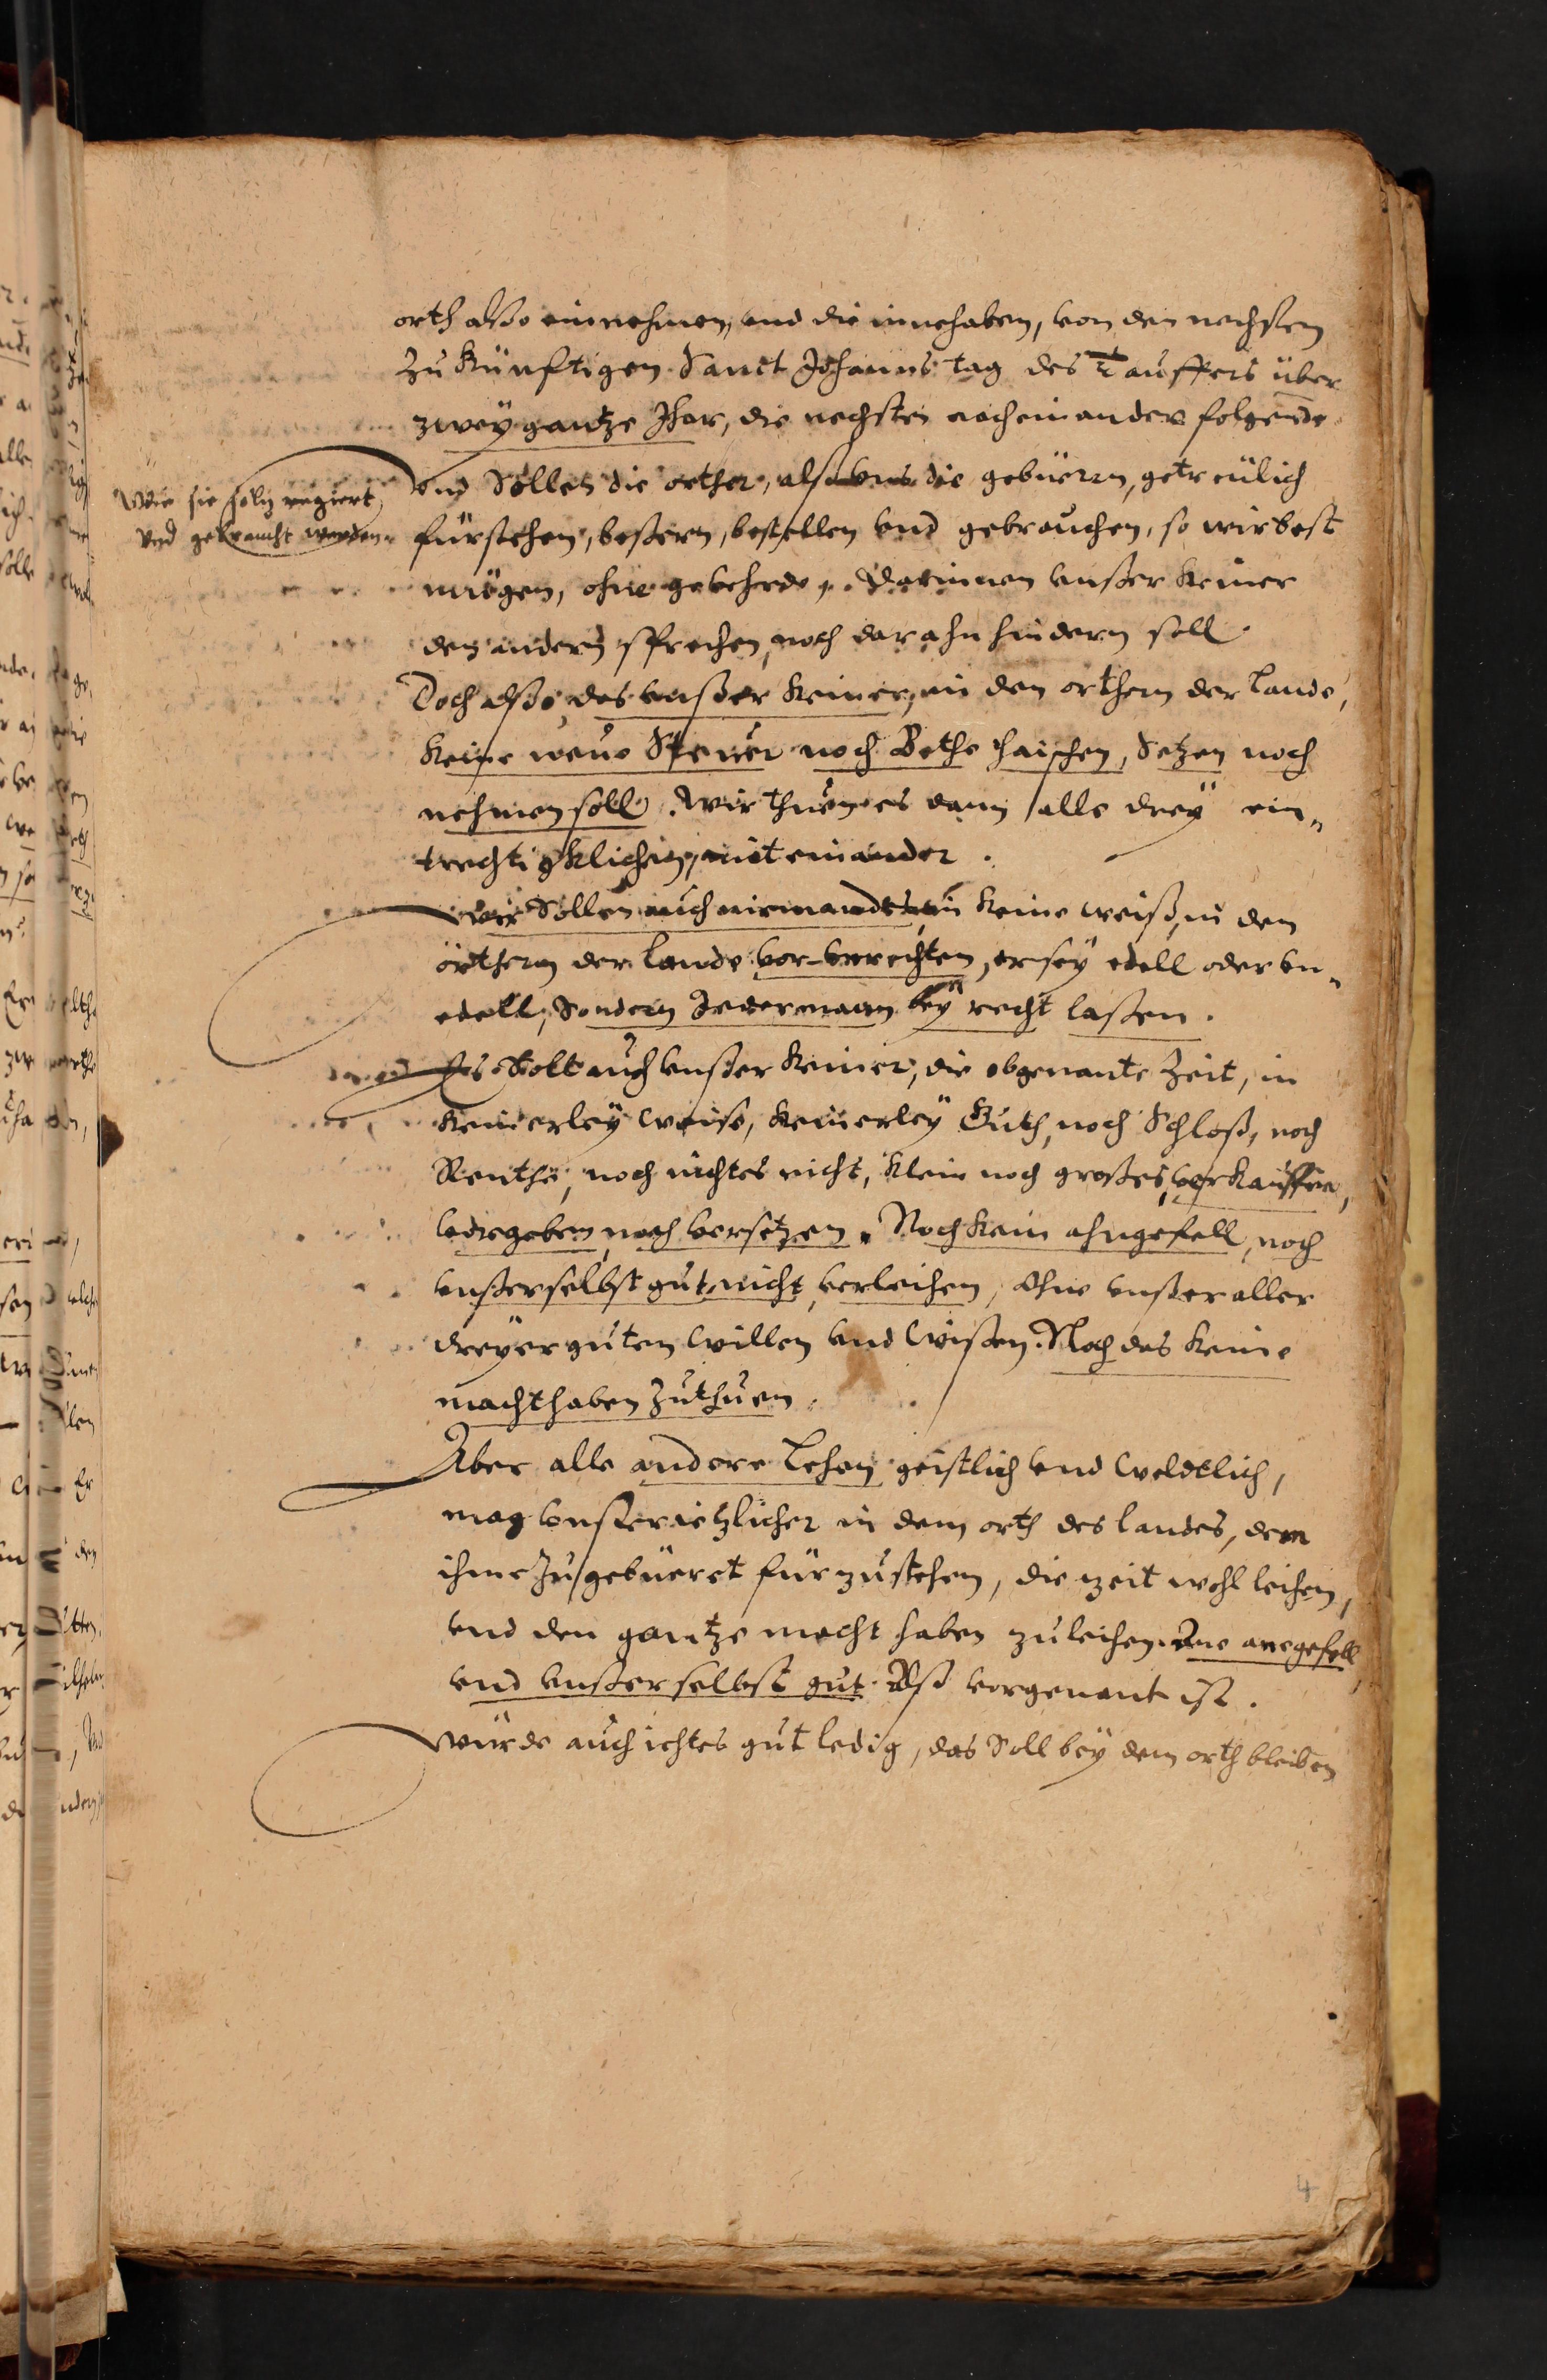 orth also einnehmen, und die innehaben, von den nechsten
Zukünftigen Sanct Johanns tag des Tauffers über
zwey gantze Jhar, die nechsten nacheinander folgende
Wie sie solln regiert
vnd gebraucht werden
vnd Sollen die orther, alß vns die gebüern, getreülich
fürstehen, beßern, bestellen vnd gebrauchen, so wir best
mögen, ohne gevehrde, Darinnen vnßer keiner
den andern sprechen, noch darahn hindern soll.
Doch alßo, das vnßer keiner, in den orthern der Lande,
keine neue Steuer noch Bethe haischen, Setzen noch
nehmen soll. Wir thuen es dann alle drey ein„
trechtigklichen, mit einander.
Wir Sollen auch niemandts, in keine weiß, in den
örthern der Lande vor vnrechten, er sey edell oder vn„
edell, Sondern Jedermann bey recht laßen.
Es Soll auch vnßer keiner, die obgenante Zeit, in
keinerley weise, keinerley Guth, noch Schloß, noch
Renthe, noch nichtes nicht, klein noch großes, verkauffen,
noch versetzen. Noch kein ahngefell, noch
vnßer selbst gut nicht verleihen, ohne vnßer aller
dreyer guten willen vnd wißen. Noch das keine
macht haben Zuthuen.
Aber alle andere Lehen geistlich vnd weldtlich,
mag vnßer ietzlicher in dem orth des landes, dem
ihme Zu gebüeret fürzustehen, die zeit wohl leihen,
vnd den gantze macht haben zuleihen. Ane anegefell,
vnd vnßer selbst gut. Alß vorgenant ist.
Würde auch ichtes gut ledig, das Soll bey dem orth bleiben
4